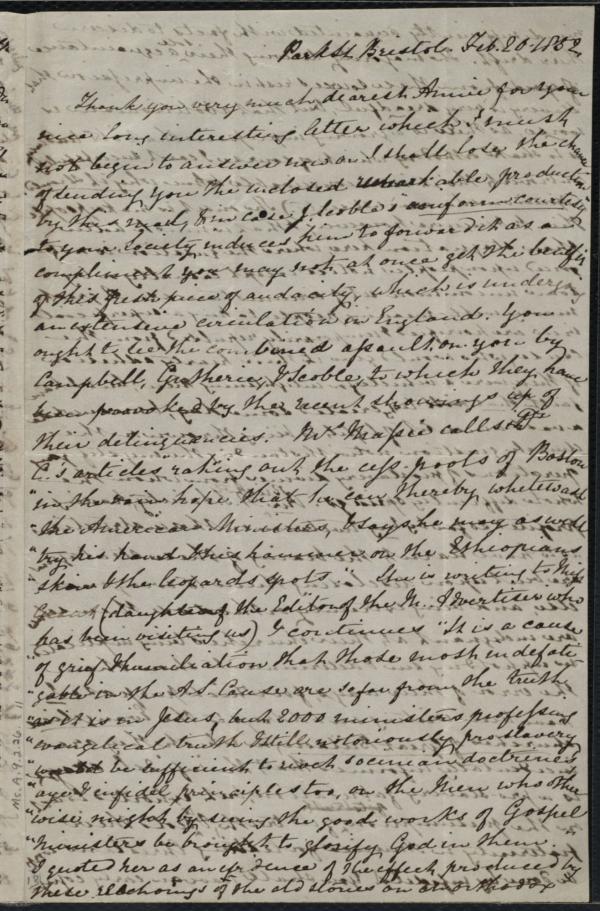 Park St. Bristol. Feb. 20. 1852.
Thank you very much, dearest Annie for your
nice long interesting letter which I must
not begin to answer now or I shall lose the chance
of sending you the inclosed remarkable production
by this mail, & in case J. Scoble's uniform courtesy
to your Society induces him to forward it as a
compliment you may not at once get the benefit
of this fresh piece of audacity, which is undergoing
an extensive circulation in England. You
ought to see the combined assault on you by
Campbell, Gutherie, & Scoble, to which they have
been provoked by the recent showings up of
their delinquencies. Mrs. Massie calls "Dr.
C.'s articles raking out the cess pools of Boston
"in the vain hope that he can thereby whitewash
"the American Ministers, & says he may as well
"try his hand & his hammer on the Ethiopians
skin & the leopards spots". She is writing to Miss
(daughter of the Editor of the N. Advertiser who
has been visiting us) & continues "It is a cause
"of grief & humiliation that those most indefati-
"gable in the A.S. Cause are so far from the truth
"as it is in Jesus, but 2000 ministers professing
"evangelical truth & still notoriously proslavery
"would be sufficient to rivet socinian doctrines,
"aye & infidel principles too, on the Men who other
"wise might by seeing the good works of Gospel
"Ministers be brought to glorify God in them.
I quoted her as an evidence of the effect produced by
these reechoings of the old stories on an orthodox
Ms. A. 9. 2. 26